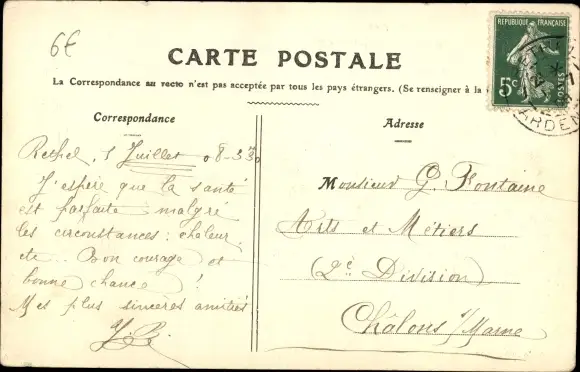 6€
CARTE POSTALE
La Correspondance au recto n'est pas acceptée par tous les pays étrangers. (Se renseigner à la
REPUBLIQUE FRANÇAISE
5c
POSTES
ARDEN
Correspondance
Rethel, 1 Juillet 08
J'espère que la santé
est parfaite malgré
les circonstances : chaleur,
etc... Bon courage et
bonne chance !
Mes plus sincères amitiés
Adresse
Monsieur G. Fontaine
Arts et Métiers
(2e Division)
Châlons s/Marne